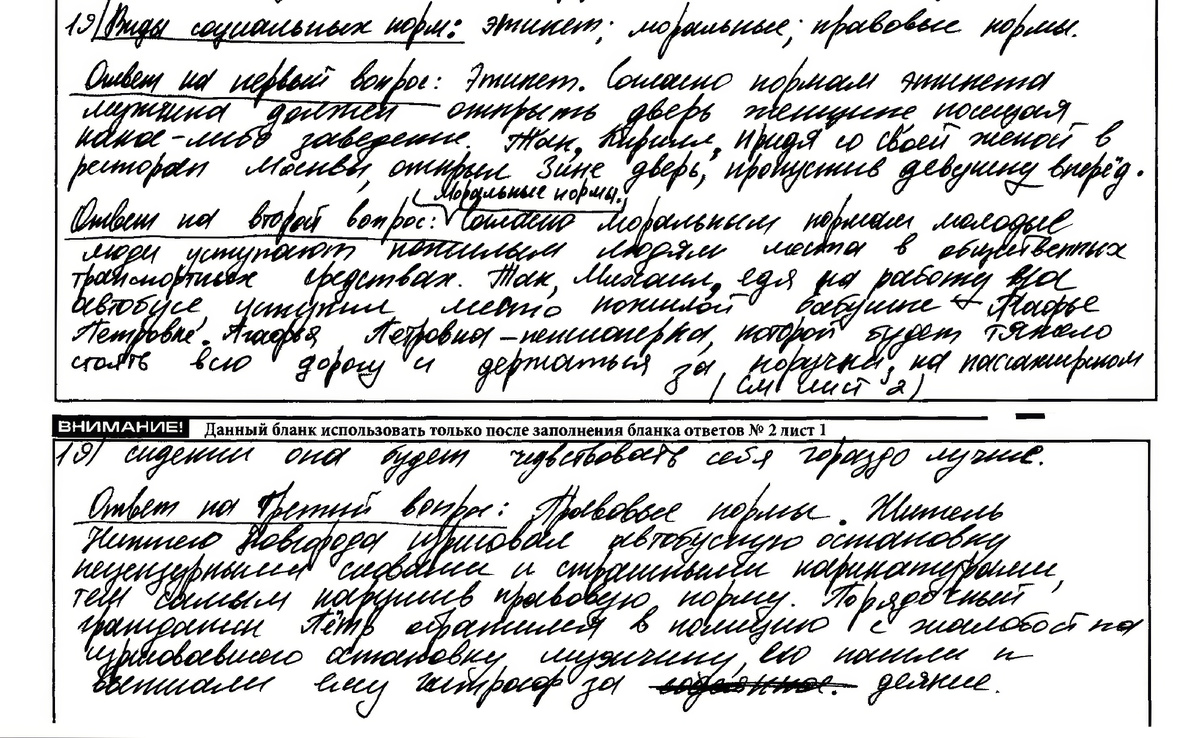 19) Виды социальных норм: этикет; моральные; правовые нормы.
Ответ на первый вопрос: Этикет. Согласно нормам этикета
мужчина должен открыть дверь женщине посещая
какое-либо заведение. Так, Кирилл, придя со своей женой в
ресторан Москвы, открыл Зине дверь, пропустив девушку вперёд.
Моральные нормы.
Ответ на второй вопрос: Согласно моральным нормам молодые
люди уступают пожилым людям места в общественных
транспортных средствах. Так, Михаил, едя на работу на
автобусе, уступил место пожилой бабушке – Агафье
Петровне. Агафья Петровна – пенсионерка, которой будет тяжело
стоять всю дорогу и держаться за поручни, на пассажирском
(см лист 2)
ВНИМАНИЕ! Данный бланк использовать только после заполнения бланка ответов № 2 лист 1
19) сидении она будет чувствовать себя гораздо лучше.
Ответ на третий вопрос: Правовые нормы. Житель
Нижнего Новгорода изрисовал автобусную остановку
нецензурными словами и страшными карикатурами,
тем самым нарушив правовую норму. Порядочный
гражданин Пётр обратился в полицию с жалобой на
изрисовавшего остановку мужчину, его нашли и
выписали ему штраф за деяние.